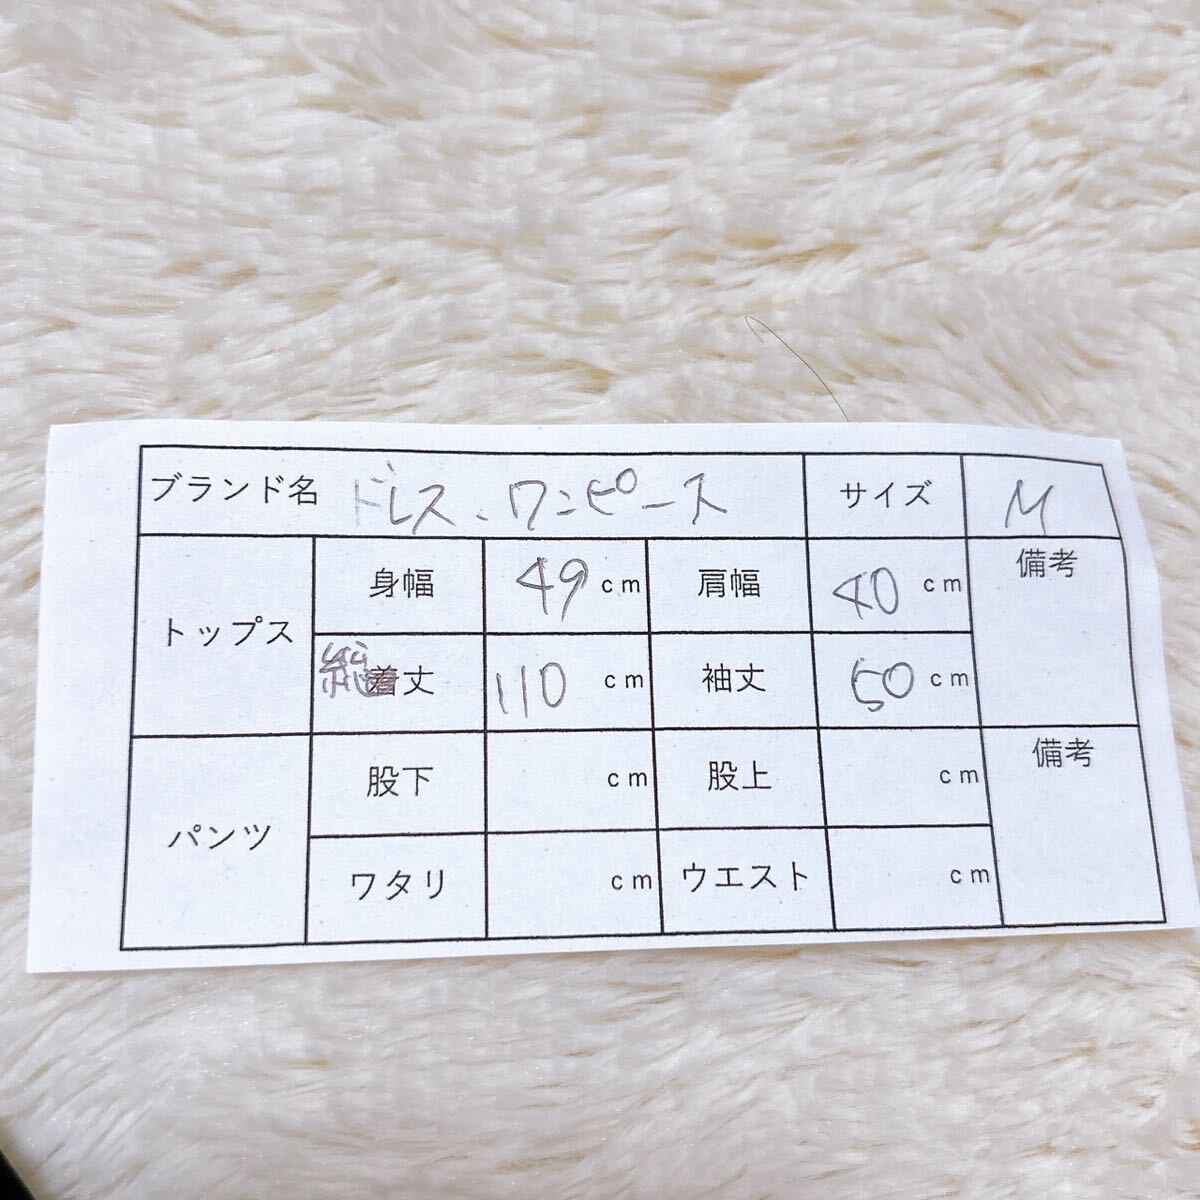 ブランド名 ドレス、ワンピース サイズ M
トップス 身幅 49 cm 肩幅 40 cm 備考
総丈 110 cm 袖丈 50 cm
パンツ 股下 cm 股上 cm 備考
ワタリ cm ウエスト cm